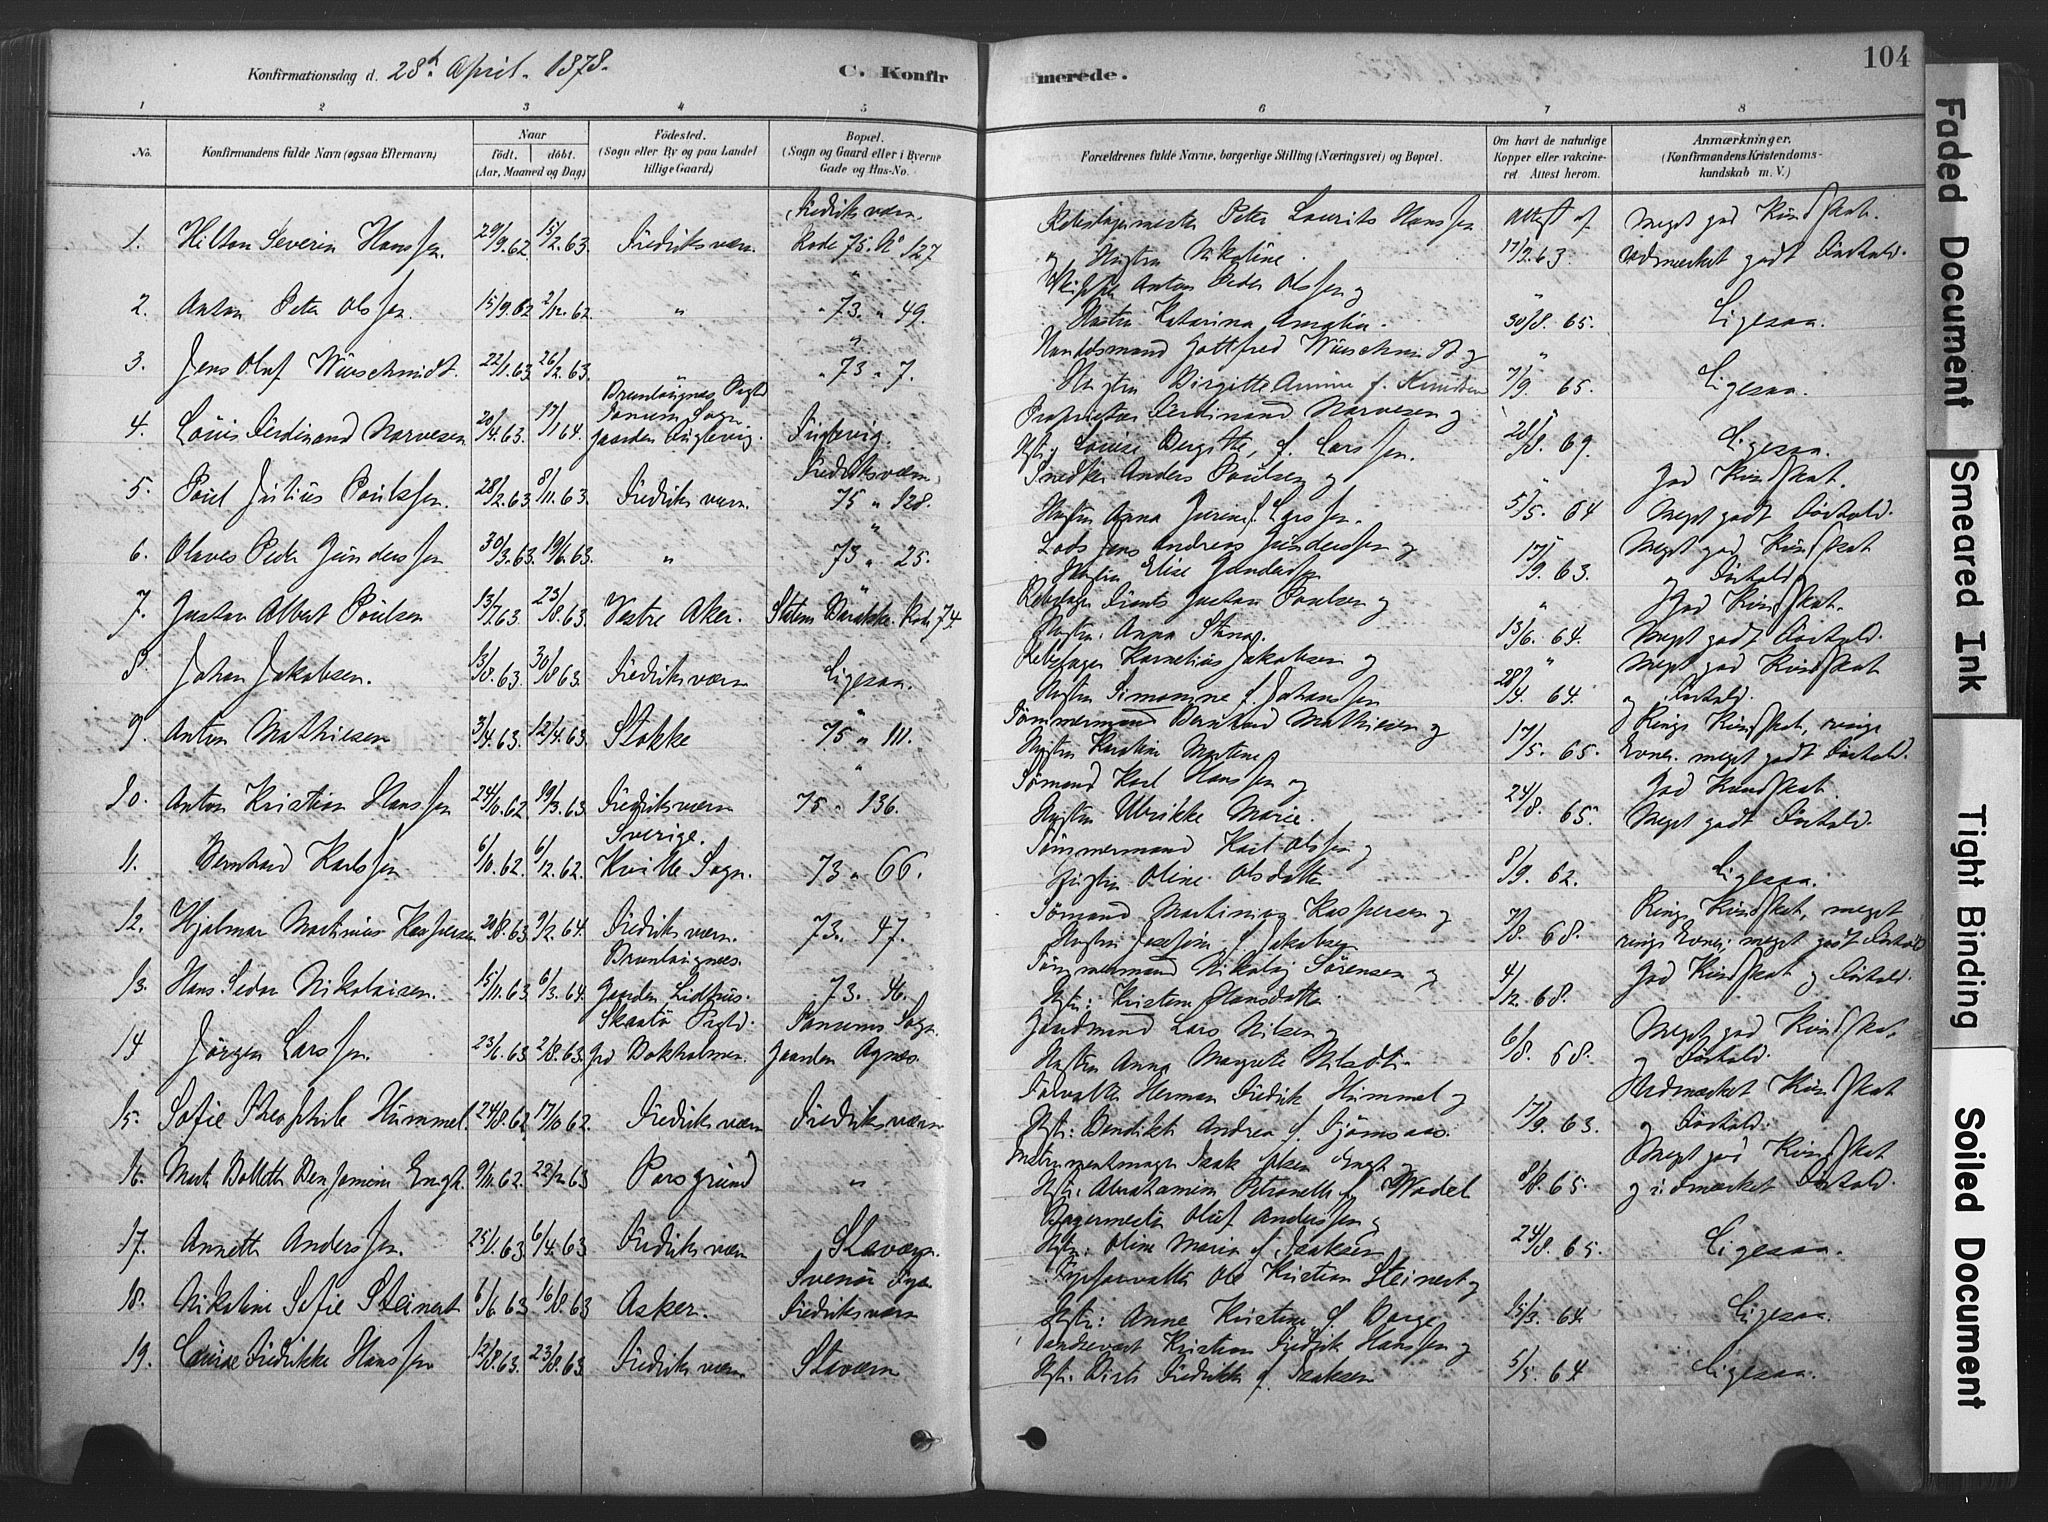 Konfirmationsdag d. 28de April 1878.
C. Konfirmerede.
104
1 2 3 4 5 6 7 8
No.
Konfirmandens fulde Navn (ogsaa Efternavn)
Naar
født. døbt.
(Aar, Maaned og Dag)
Fødested.
(Sogn eller By og paa Landet
tillige Gaard)
Bopæl.
(Sogn og Gaard eller i Byerne
Gade og Hus-No.
Forældrenes fulde Navne, borgerlige Stilling (Næringsvei) og Bopæl.
Om havt de naturlige
Kopper eller vakcine-
ret Attest herom.
Anmærkninger.
(Konfirmandens Kristendoms-
kundskab m. V.)
1. Hilton Severin Hanssen. 29/9.62. 15/2.63. Fredriksværn. Fredriksværn. Rode 75. No 127 Rebslagermester Peter Laurits Hanssen og Hustru Nikoline. Attest af 17/9.63. Meget god Kundskab. Udmærket godt Forhold.
2. Anton Peter Olssen. 15/9.62 2/12.62. " " 73. " 49. Anton Peder Olssen og Hustru Katarina Amalia. " 30/8. 65. Ligesaa.
3. Jens Oluf Würschmidt. 22/1.63. 26/2.63. " 73 " 7. Handelsmand Gottfred Würschmidt og Hustru Birgitte Amine f. Knudsen " 7/9 65. Ligesaa.
4. Louis Ferdinand Narvesen 20/4.63. 17/1 64. Brunlagnes Prgld Tanum Sogn Gaarden Fuglevig. Fuglevig. Proprietær Ferdinand Narvesen og Hustru Louise Bergitte, f. Larssen. 28/8. 69. Ligesaa.
5. Poul Julius Poulssen. 28/2.63 8/11.63. Fredriksværn. Fredriksværn. 75 " 128. Snedker Anders Poulsen og Hustru Anna f. Larssen. " 5/5. 64 God Kundskab. Meget godt Forhold.
6. Olaves Peder Gunderssen 30/3.63. 19/6.63. " 73 " 25. Lods Jens Andreas Gunderssen og Hustru Elise Gunderssen 17/9 63. Meget god Kundskab og Forhold
7. Gustav Albert Poulsen 13/7.63 23/8.63. Vestre Aker. Statens Barakke. Rode 74. Rebslager Frants Gustav Poulsen og Hustru: Anna Stina. " 13/6. 64. God Kundskab. Meget godt Forhold.
8. Johan Jakobsen. 13/8.63. 30/8 63. Fredriksværn Ligesaa. Rebslager Kornelius Jakobsen og Hustru Simonine f. Johanssen " 28/4 64. Meget god Kundskab og Forhold.
9. Anton Mathiesen 3/4.63. 12/4.63. Stokke 75 " 111. Tømmermand Bernhard Mathiesen og Hustru Karoline Martine 17/5. 65. Ringe Kundskab, ringe Evner. meget godt Forhold.
10. Anton Kristian Hanssen 24/10.62. 19/3.63. Fredriksværn 75 " 136. Sømand Karl Hanssen og Hustru Ulrikke Marie. 24/8. 65. God Kundskab. Meget godt Forhold.
11. Bernhard Karlssen 6/10.62. 6/12.62. Sverige. Kville Sogn. 73 " 66. Tømmermand Karl Olssen og Hustru Oline Olsdatter 8/9. 62. Ligesaa.
12. Hjalmar Martinius Kaspersen 20/8.63. 9/2.64. Fredriksværn. 73. " 47. Sømand Martinius Kaspersen og Hustru Josefine f. Jakobsen 7/8. 68. Ringe Kundskab, meget ringe Evner; meget godt Forhold
13. Hans Nikolaisen. 15/11.63. 6/3.64. Brunlagnes. Gaarden 73. " 46. Tømmermand Nikolaj Sørensen og Hustr: Kristine Hansdatter 4/12. 68. God Kundskab og Forhold.
14 Jørgen Larssen 23/6.63 2/8.63. Skaatø Prgld. Grd Bokholmen. Tanums Sogn. Gaarden Agnes. Gaardmand Lars Nilsen og Hustru Anna Margrete Nilsdtr. 6/8. 68. Meget god Kundskab og Forhold.
15. Sofie Theophile Hummel. 24/8.62. 17/10 62. Fredriksværn Fredriksværn Forvalter Herman Fredrik Hummel og Hstr: Bendikte Andrea f. 17/9. 63. Udmærket Kundskab og Forhold.
16. Bolette Benjamine Engh. 9/11.62. 22/2.63 Porsgrund " Instrumentmager Isak Engh og Hstr: Abrahamine Petronelle f. Wadel 8/8. 65. Meget god Kundskab og udmærket Forhold.
17. Annette Anderssen. 25/1.63. 6/4.63 Fredriksværn Staværn. Bagermester Oluf Anderssen og Hstr: Oline Marie f. Isaksen 24/8. 65. Ligesaa.
18. Nikoline Sofie Steinert 6/6.63 16/8.63 Asker. Svenør Fyr Fredriksværn Fyrforvalter Ole Kristian Steinert og Hstr: Anne Kristine f. Borge 15/3. 64. Ligesaa.
19. Laura Fredrikke Hanssen 12/8.63. 23/8.63. Fredriksværn Staværn Kristian Fredrik Hanssen og Hstr. Fredrikke f. Isaksen 5/5. 64 Ligesaa.
Faded Document
Smeared Ink
Tight Binding
Soiled Document